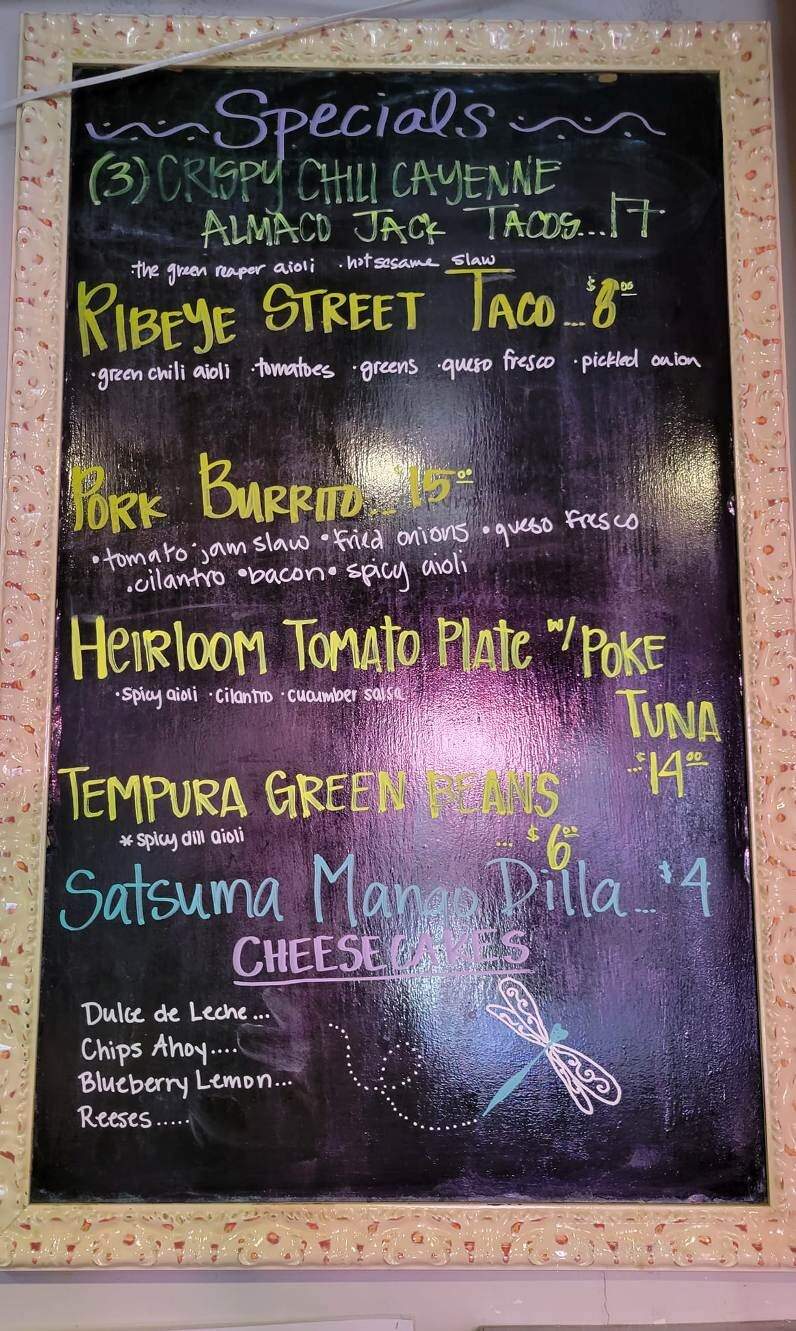 Specials
(3) CRISPY CHILI CAYENNE
ALMACO JACK TACOS...17
·the green reaper aioli ·hot sesame slaw
RIBEYE STREET TACO...$8.00
·green chili aioli ·tomatoes ·greens ·queso fresco ·pickled onion
PORK BURRITO...$15.00
·tomato jam slaw ·fried onions ·queso fresco
·cilantro ·bacon· spicy aioli
HEIRLOOM TOMATO PLATE w/ POKE
TUNA
·spicy aioli ·cilantro ·cucumber salsa
...$14.00
TEMPURA GREEN BEANS
* spicy dill aioli
...$6.00
Satsuma Mango Dilla...$4
CHEESECAKES
Dulce de Leche...
Chips Ahoy....
Blueberry Lemon...
Reeses.....